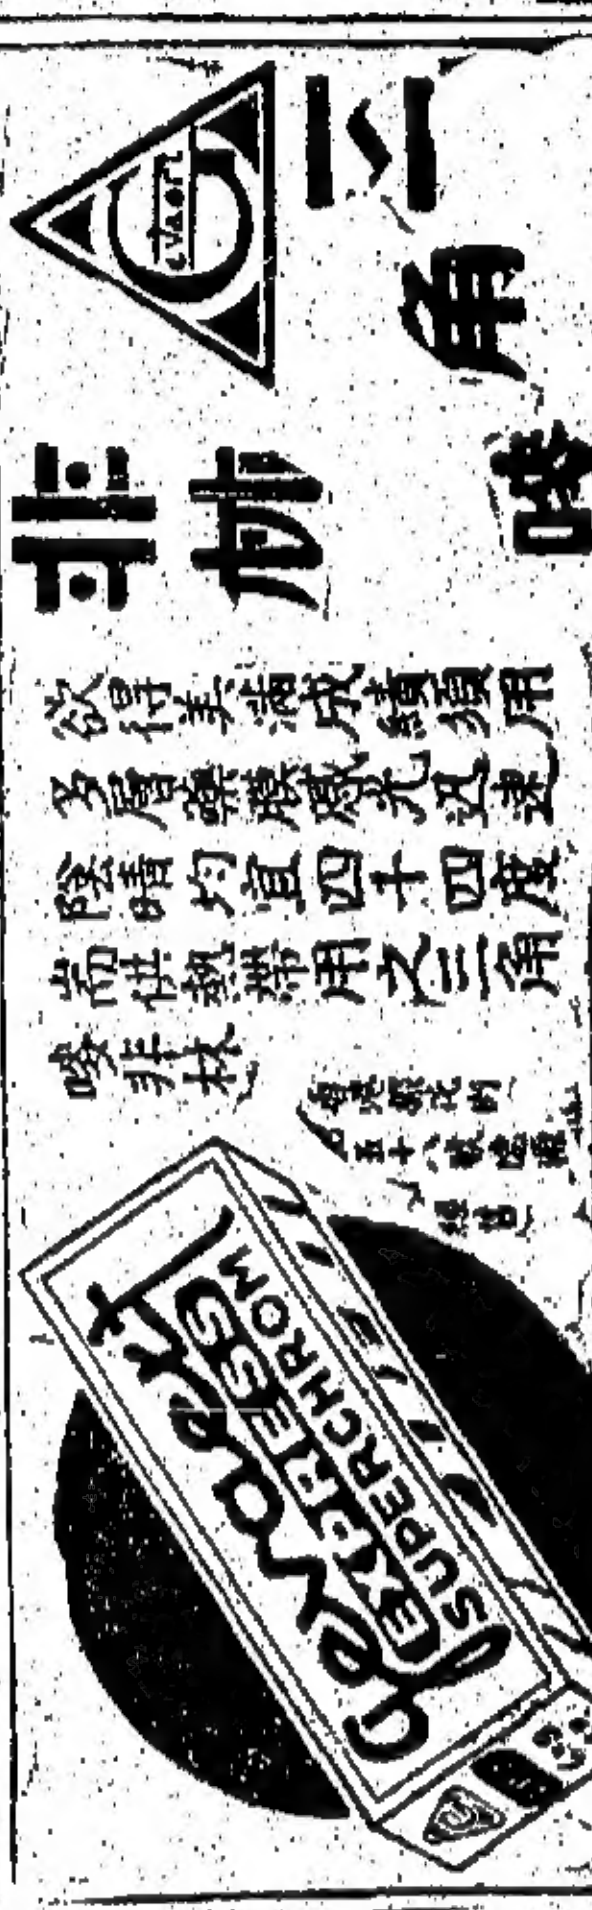 Gevaert
三角嘜
非林
欲得美滿成績須用
多層藥膜感光迅速
陰晴均宜四十四度
而供熱帶用之三角
嘜非林
五十八號
經售
Gevaert
EXPRESS
SUPERCHROM